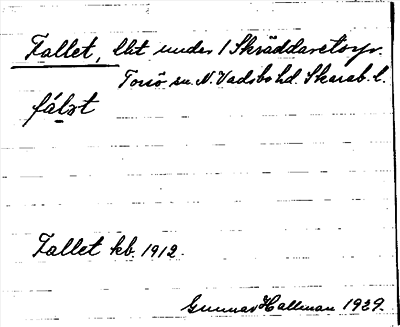 Fallet, lht. under 1 Skräddaretorp.
Torsö sn. N. Vadsbo hd. Skarab. l.
fálət
Fallet kb. 1912.
Gunnar Hallman 1929.